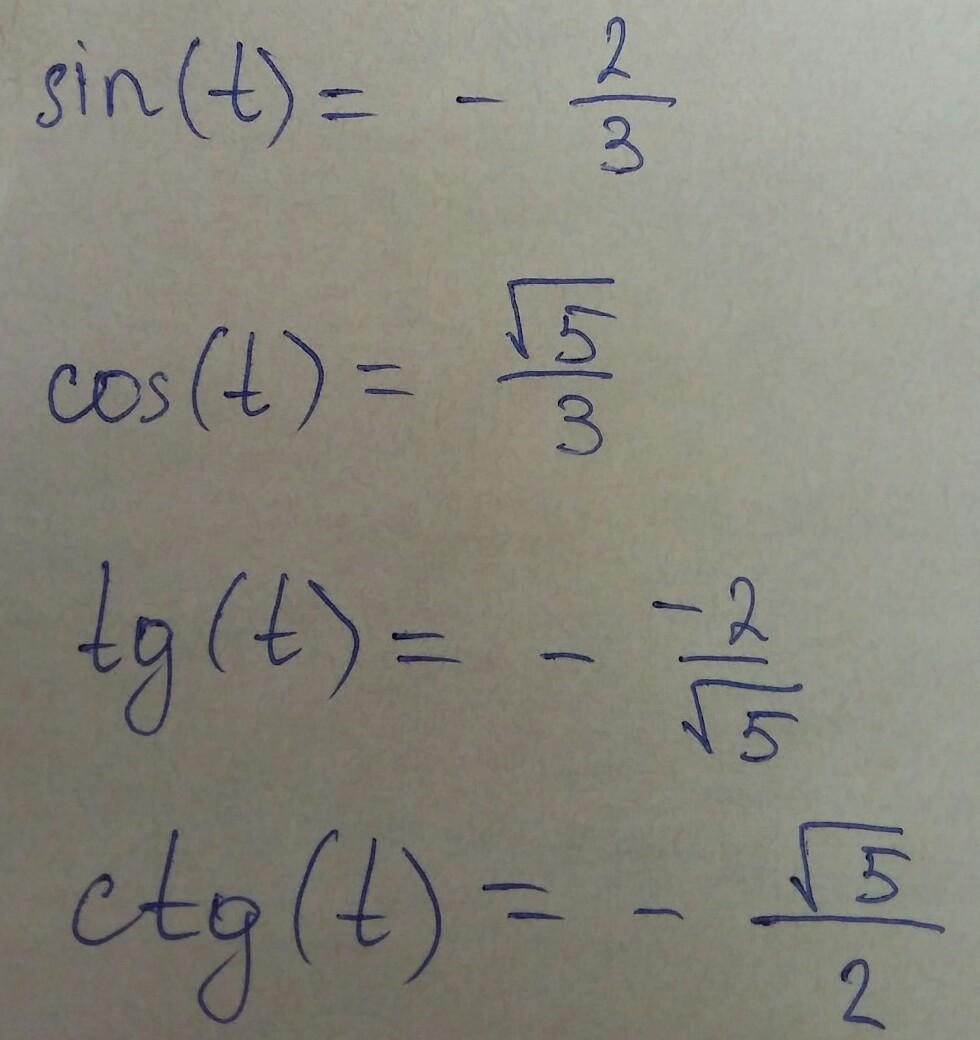 sin(t) = - 2/3
cos(t) = √5/3
tg(t) = - -2/√5
ctg(t) = - √5/2